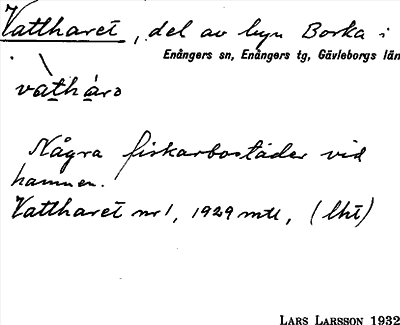 Vattharet, del av byn Borka i
Enångers sn, Enångers tg, Gävleborgs län
vàthárə
Några fiskarbostäder vid
hamnen.
Vattharet nr 1, 1929 mtl, (lht)
LARS LARSSON 1932